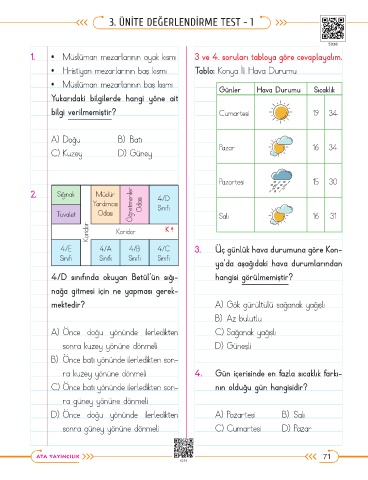 3. ÜNİTE DEĞERLENDİRME TEST - 1
1.
• Müslüman mezarlarının ayak kısmı
• Hristiyan mezarlarının baş kısmı
• Müslüman mezarlarının baş kısmı
Yukarıdaki bilgilerde hangi yöne ait
bilgi verilmemiştir?
A) Doğu B) Batı
C) Kuzey D) Güney
2.
Sığınak
Müdür
Yardımcısı
Odası
Öğretmenler
Odası
4/D
Sınıfı
Tuvalet
Koridor
Koridor
K
4/E
Sınıfı
4/A
Sınıfı
4/B
Sınıfı
4/C
Sınıfı
4/D sınıfında okuyan Betül'ün sığı-
nağa gitmesi için ne yapması gerek-
mektedir?
A) Önce doğu yönünde ilerledikten
sonra kuzey yönüne dönmeli
B) Önce batı yönünde ilerledikten son-
ra kuzey yönüne dönmeli
C) Önce batı yönünde ilerledikten son-
ra güney yönüne dönmeli
D) Önce doğu yönünde ilerledikten
sonra güney yönüne dönmeli
3 ve 4. soruları tabloya göre cevaplayalım.
Tablo: Konya İli Hava Durumu
Günler Hava Durumu Sıcaklık
Cumartesi 19 34
Pazar 16 34
Pazartesi 15 30
Salı 16 31
3. Üç günlük hava durumuna göre Kon-
ya'da aşağıdaki hava durumlarından
hangisi görülmemiştir?
A) Gök gürültülü sağanak yağışlı
B) Az bulutlu
C) Sağanak yağışlı
D) Güneşli
4. Gün içerisinde en fazla sıcaklık farkı-
nın olduğu gün hangisidir?
A) Pazartesi B) Salı
C) Cumartesi D) Pazar
ATA YAYINCILIK
71